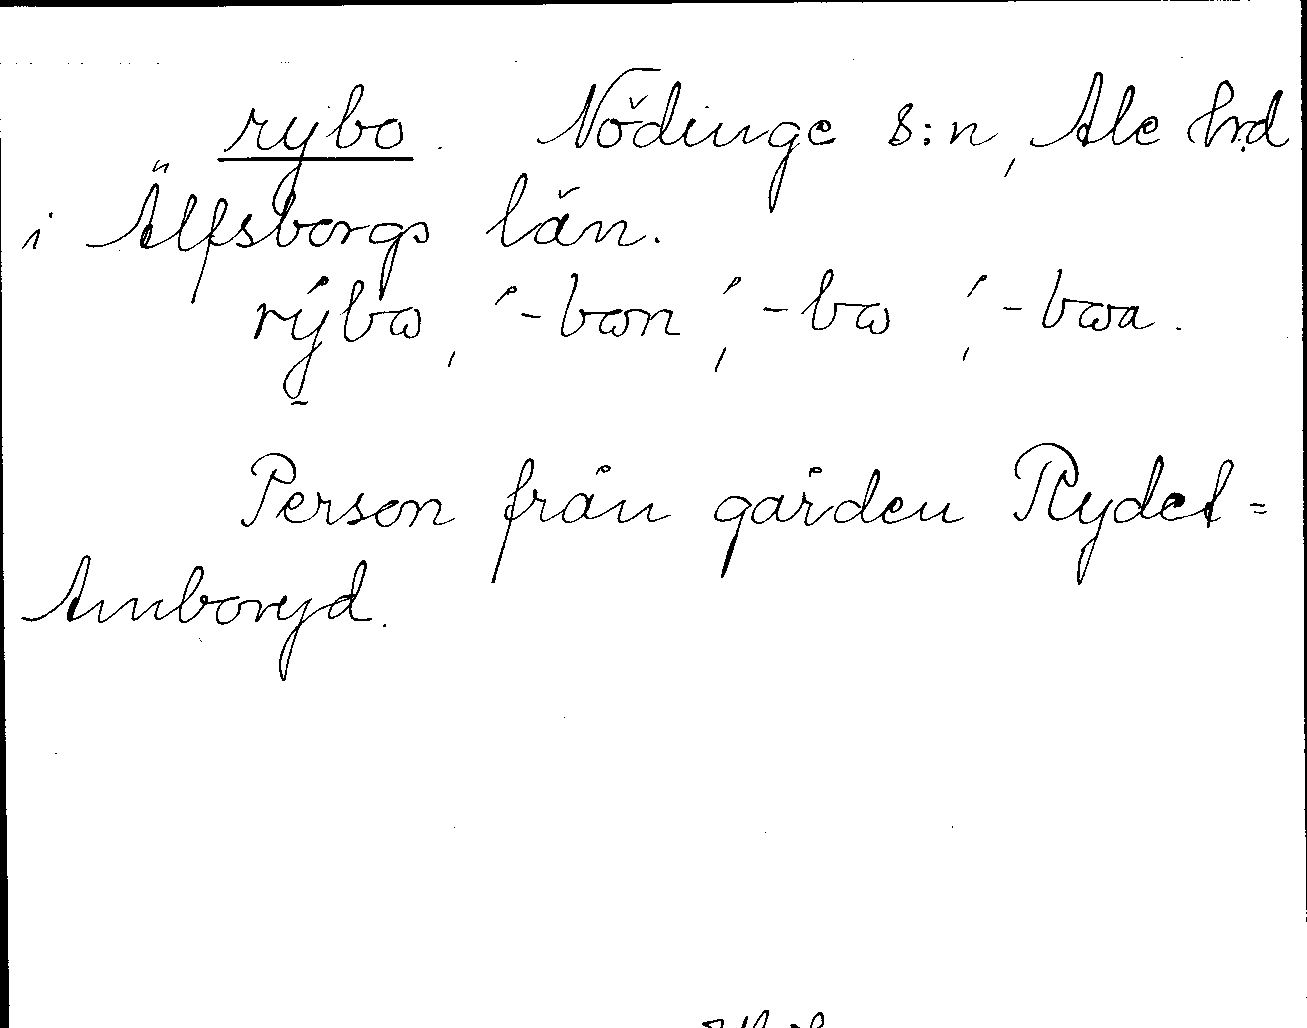 rybo. Nödinge s:n, Ale hrd
i Älfsborgs län.
rýbω, ´-bωn, ´-bω, ´-bωa.
Person från gården Rydet=
Amboryd.